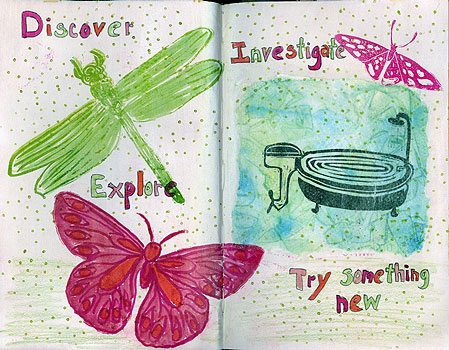 Discover
Explore
Investigate
Try something
new